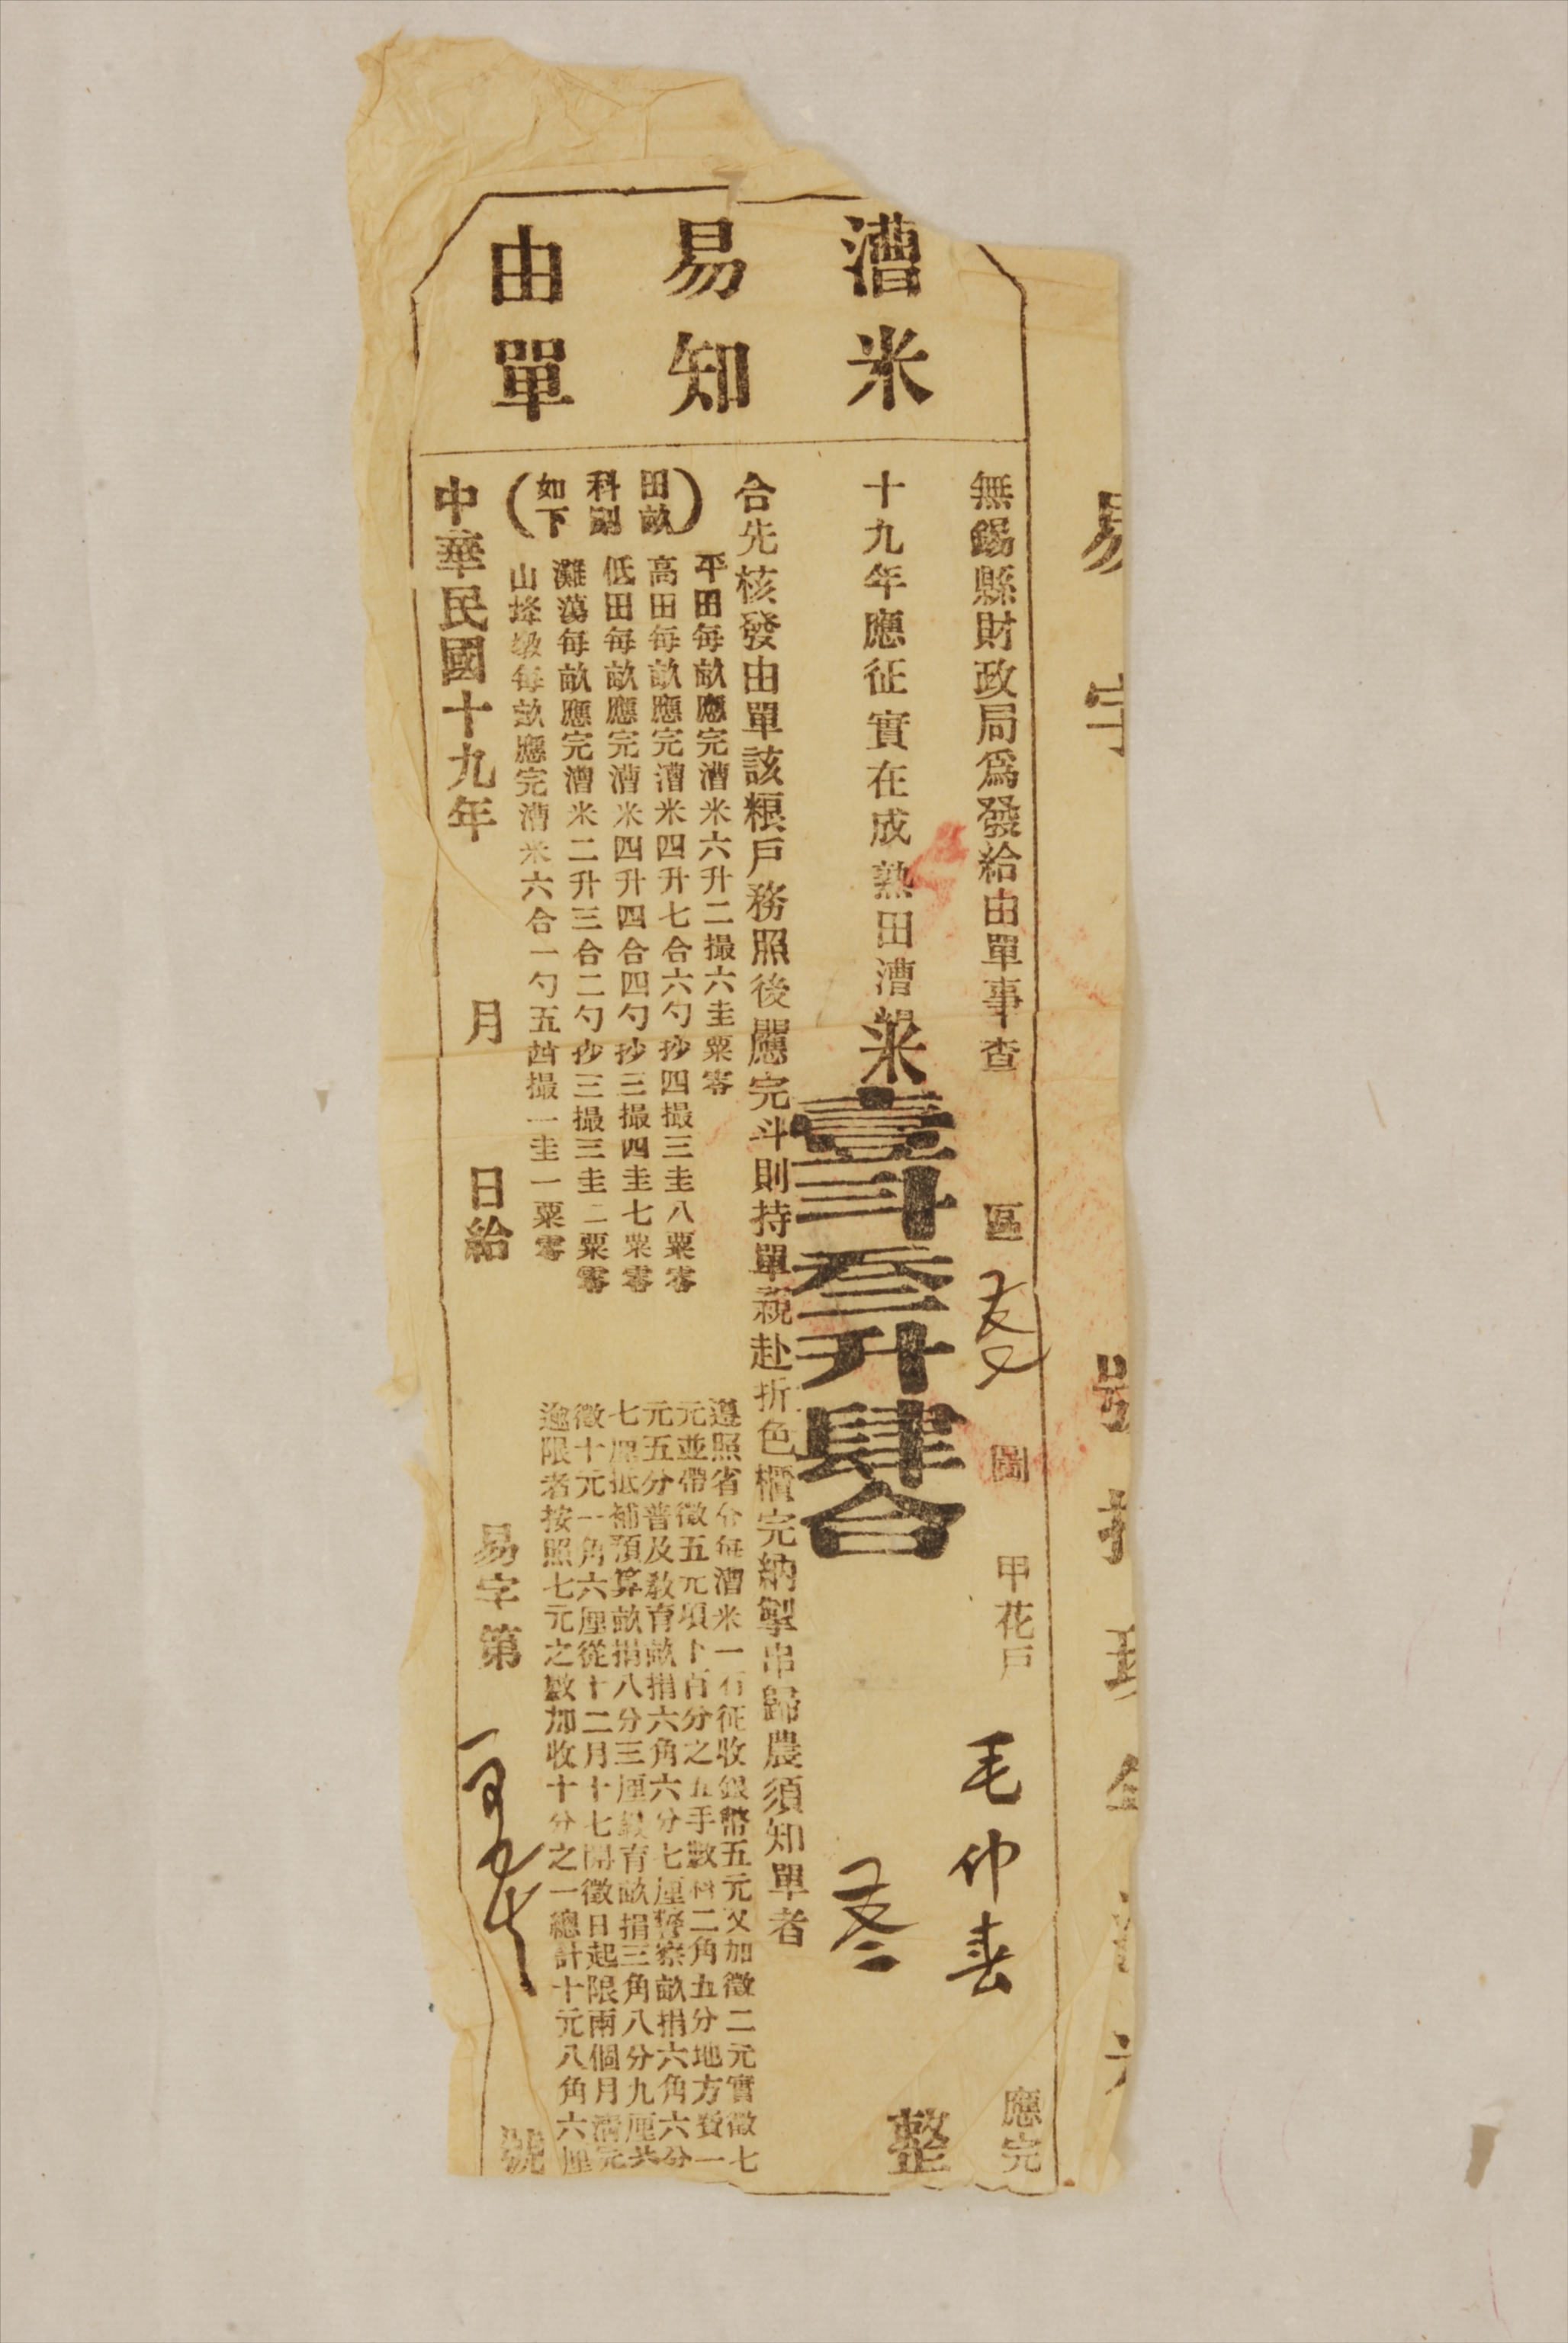 易字
號
漕米
易知
由單
無錫縣財政局爲發給由單事查 區 圖 甲花戶 毛仲春 應完
十九年應征實在成熟田漕米壹斗叁升肆合 整
合先核發由單該粮戶務照後應完斗則持單親赴折色櫃完納掣串歸農須知單者
(田畝科則如下)
平田每畝應完漕米六升二撮六圭粟零
高田每畝應完漕米四升七合六勺抄四撮三圭八粟零
低田每畝應完漕米四升四合四勺抄三撮四圭七粟零
灘蕩每畝應完漕米二升三合二勺抄三撮三圭二粟零
山每畝應完漕米六合一勺五撮一圭一粟零
遵照省令每漕米一石征收銀幣五元又加徵二元實徵七
元並帶徵五元項下百分之五手數料二角五分地方費一
元五分普及敎育畝捐六角六分七厘警察畝捐六角六分
七厘抵補預算畝捐八分三厘敎育畝捐三角八分九厘共
徵十元一角六厘從十二月十七開徵日起限兩個月清完
逾限者按照七元之數加收十分之一總計十元八角六厘
中華民國十九年 月 日給 易字第 號